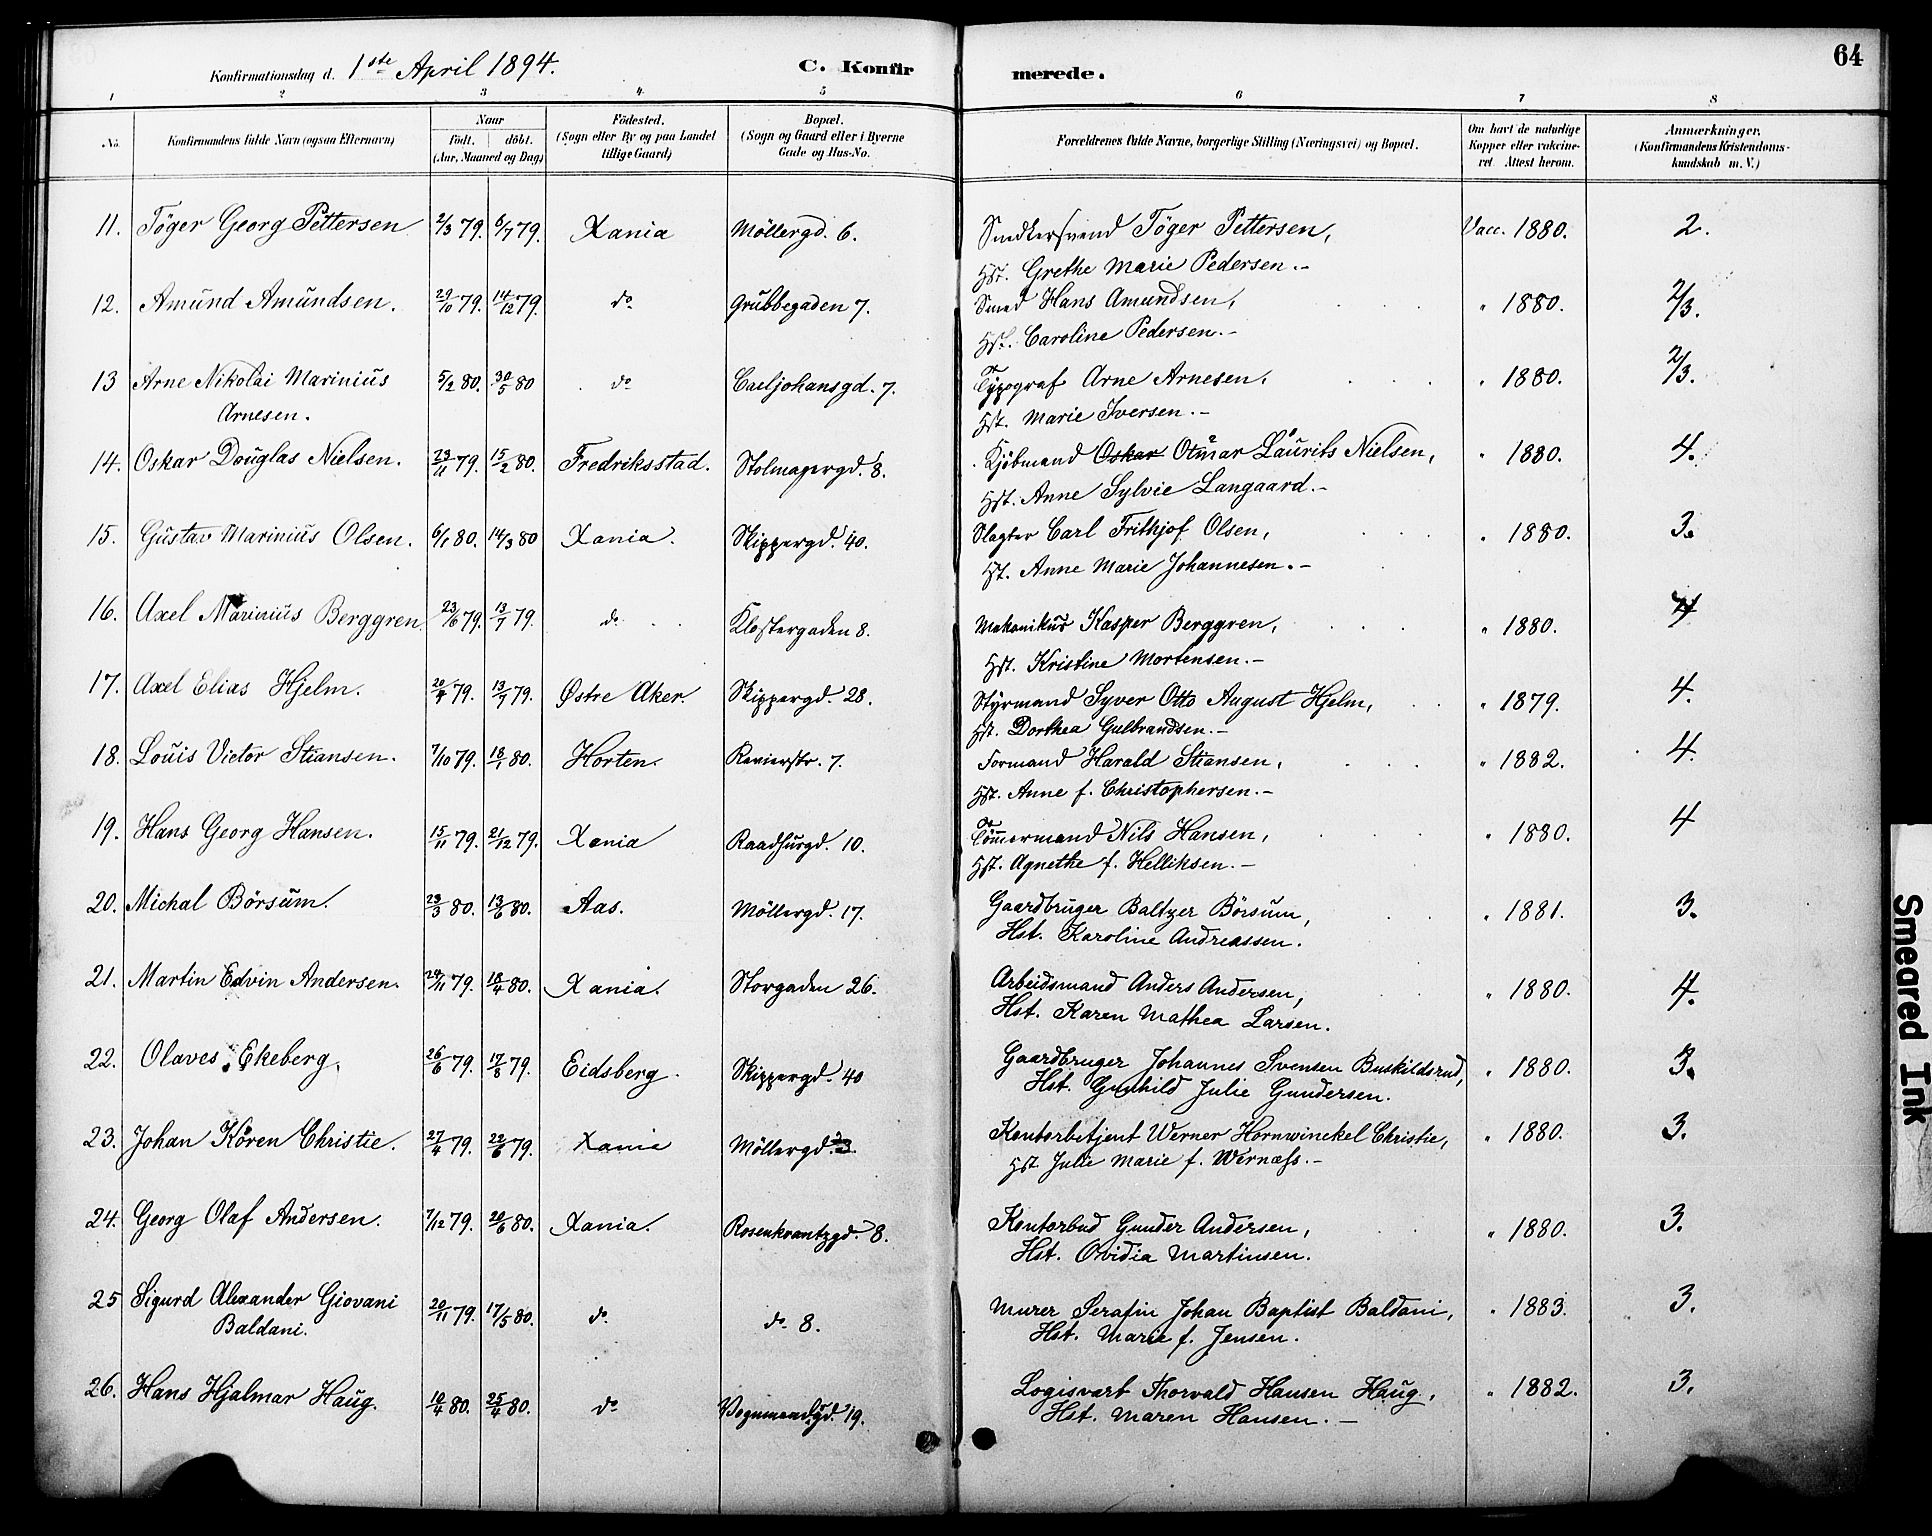 64
Konfirmationsdag d. 1ste April 1894. C. Konfirmerede.
1 2 3 4 5 6 7 8
No. Konfirmandens fulde Navn (ogsaa Efternavn) Naar födt. döbt. (Aar, Maaned og Dag) Födested. (Sogn eller By og paa Landet tillige Gaard) Bopæl. (Sogn og Gaard eller i Byerne Gade og Hus-No. Forældrenes fulde Navne, borgerlige Stilling (Næringsvei) og Bopæl. Om havt de naturlige Kopper eller vakcineret. Attest herom. Anmærkninger. (Konfirmandens Kristendomskundskab m. V.)
11. Töger Georg Pettersen 2/3 79. 6/7 79. Xania Möllergd. 6. Snedkersvend Töger Pettersen, Vacc. 1880. 2.
Hst. Grethe Marie Pedersen.-
12. Amund Amundsen. 29/10 79. 14/12 79. do Grubbegaden 7. Smed Hans Amundsen, " 1880. 2/3.
Hst. Caroline Pedersen.-
13 Arne Nikolai Marinius 5/2 80. 30/5 80 do Carljohansgd. 7. Typograf Arne Arnesen, " 1880. 2/3.
Arnesen. Hst. Marie Iversen.-
14. Oskar Douglas Nielsen. 23/11 79. 15/2 80. Fredriksstad. Stolmagergd. 8. Kjöbmand Oskar Otmar Laurits Nielsen, " 1880. 4.
Hst. Anne Sylvie Langaard.-
15. Gustav Marinius Olsen. 6/1 80. 14/3 80 Xania. Skippergd. 40. Slagter Carl Frithjof Olsen, " 1880. 3.
Hst. Anne Marie Johannesen.-
16. Axel Marinius Berggren 23/6 79. 13/7 79. do Klostergaden 8. Mekanikus Kasper Berggren, " 1880. 4
Hst. Kristine Mortensen.-
17. Axel Elias Hjelm. 20/4 79. 13/7 79. Østre Aker. Skippergd. 28. Styrmand Syver Otto August Hjelm, " 1879. 4.
Hst. Dorthea Gulbrandsen.-
18. Louis Victor Stiansen. 7/10 79. 18/1 80. Horten. Revierstr. 7. Formand Harald Stiansen, " 1882. 4.
Hst. Anne f. Christophersen.-
19. Hans Georg Hansen. 15/11 79. 21/12 79. Xania Raadhusgd. 10. Tömmermand Nils Hansen, " 1880. 4
Hst. Agnethe f. Helliksen.-
20. Michal Börsum. 23/3 80. 13/6 80. Aas. Möllergd. 17. Gaardbruger Baltzer Börsum, " 1881. 3.
Hst. Karoline Andreassen.
21. Martin Edvin Andersen. 29/11 79. 18/4 80. Xania. Storgaden 26. Arbeidsmand Anders Andersen, " 1880. 4.
Hst. Karen Mathea Larsen.
22. Olaves Ekeberg. 26/6 79. 17/8 79. Eidsberg. Skippergd. 40 Gaardbruger Johannes Svensen Buskildsrud, " 1880. 3.
Hst. Gunhild Julie Gundersen.
23. Johan Kören Christie. 27/4 79. 22/6 79. Xania Möllergd. Kontorbetjent Werner Hornwinckel Christie, " 1880. 3.
Hst. Julie Marie f. Wernæss.-
24. Georg Olaf Andersen. 7/12 79. 20/6 80. Xania. Rosenkrantzgd. 8. Kontorbud Gunder Andersen, " 1880. 3.
Hst. Ovidia Martinsen.
25 Sigurd Alexander Giovani 20/11 79. 17/5 80. do do 8. Murer Serafin Johan Baptist Baldani, " 1883. 3.
Baldani. Hst. Marie f. Jensen.
26. Hans Hjalmar Haug. 10/4 80. 25/4 80. do Vognmandsgd. 19. Logisvært Thorvald Hansen Haug, " 1882. 3.
Hst. Maren Hansen.-
Smeared Ink